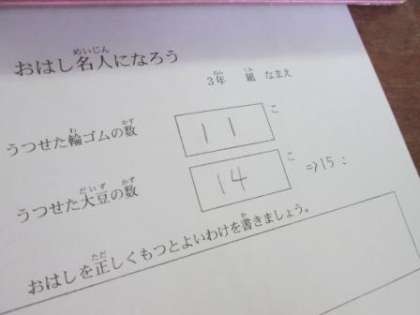 おはし名人になろう
3年 組 なまえ
うつせた輪ゴムの数 11 こ
うつせた大豆の数 14 こ ⇒15こ
おはしを正しくもつとよいわけを書きましょう。